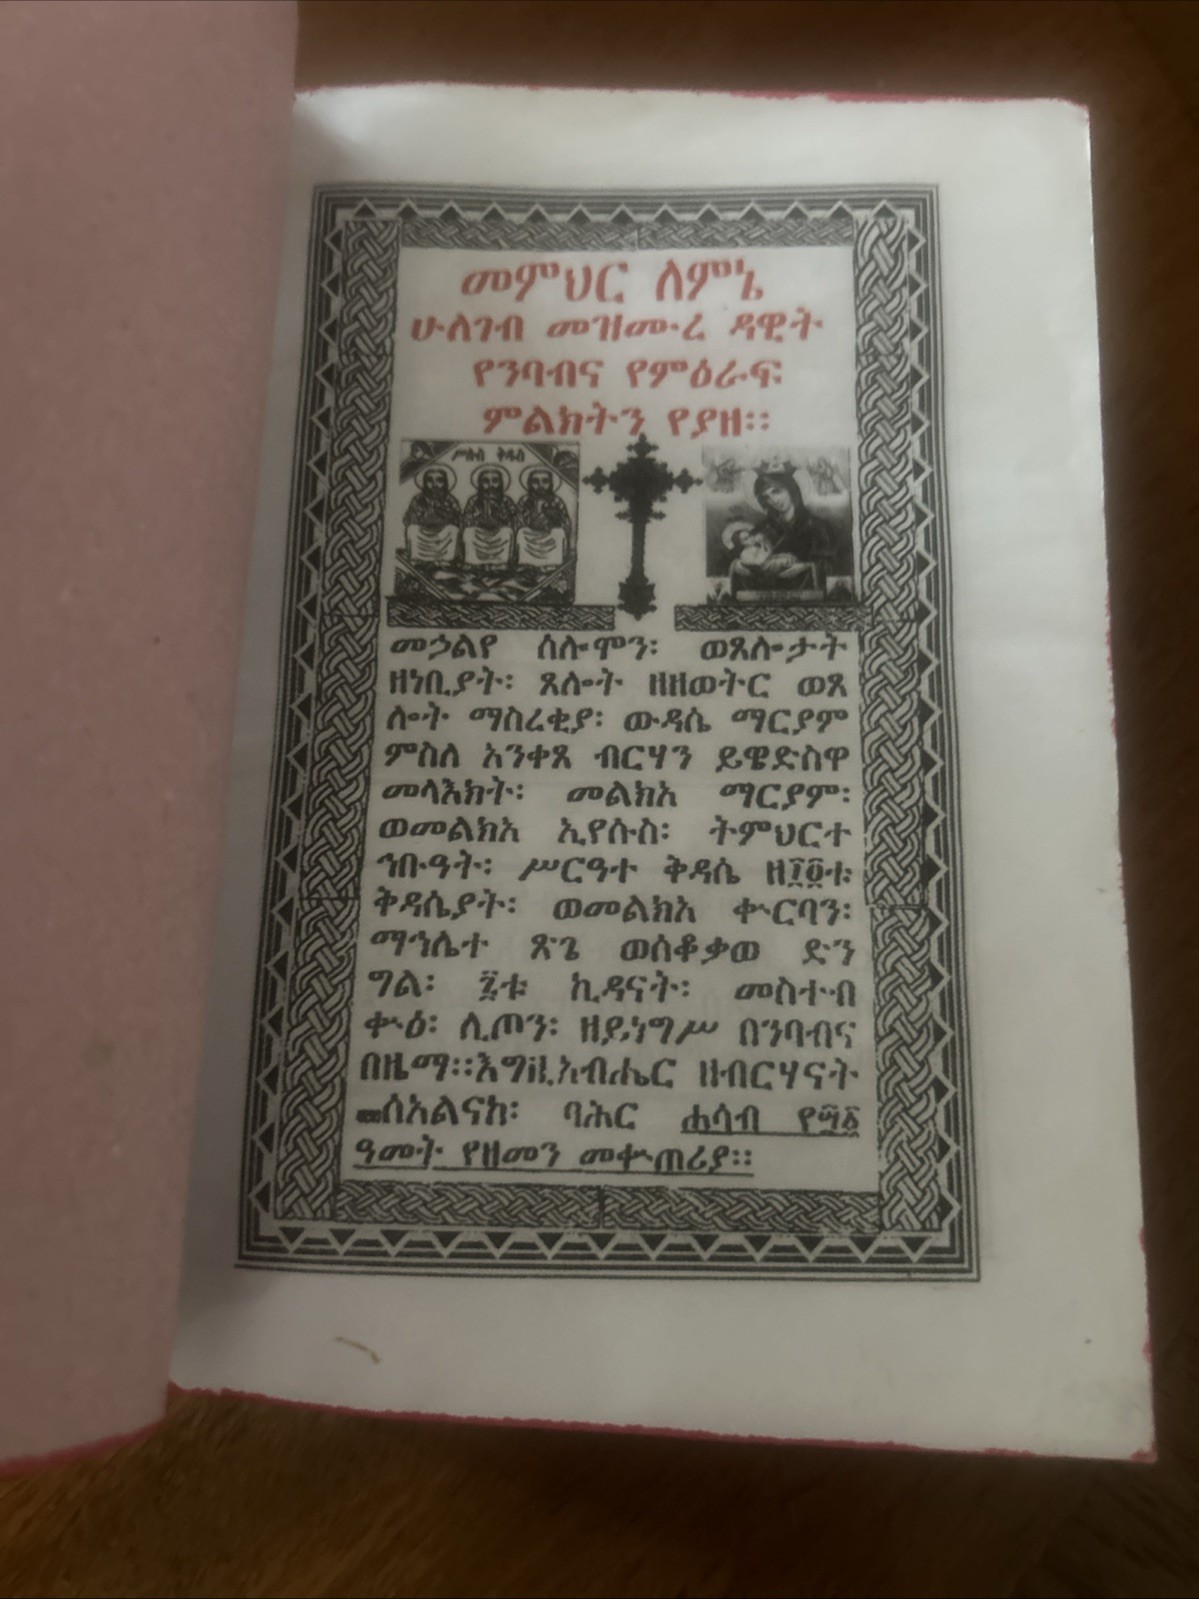 መምህር ለምኔ
ሁለገብ መዝሙረ ዳዊት
የንባብና የምዕራፍ
ምልክትን የያዘ።
ሥሉስ ቅዱስ
መኃልየ ሰሎሞን፡ ወጸሎታት
ዘነቢያት፡ ጸሎት ዘዘወትር ወጸ
ሎት ማስረቂያ፡ ውዳሴ ማርያም
ምስለ አንቀጸ ብርሃን ይዌድስዋ
መላእክት፡ መልክአ ማርያም፡
ወመልክአ ኢየሱስ፡ ትምህርተ
ኅቡዓት፡ ሥርዓተ ቅዳሴ ዘ፲፬ቱ
ቅዳሴያት፡ ወመልክአ ቍርባን፡
ማኅሌተ ጽጌ ወሰቆቃወ ድን
ግል፡ ፯ቱ ኪዳናት፡ መስተብ
ቍዕ፡ ሊጦን፡ ዘይነግሥ በንባብና
በዜማ።እግዚአብሔር ዘብርሃናት
ሰአልናከ፡ ባሕር ሐሳብ የ፶፩
ዓመት የዘመን መቍጠሪያ።